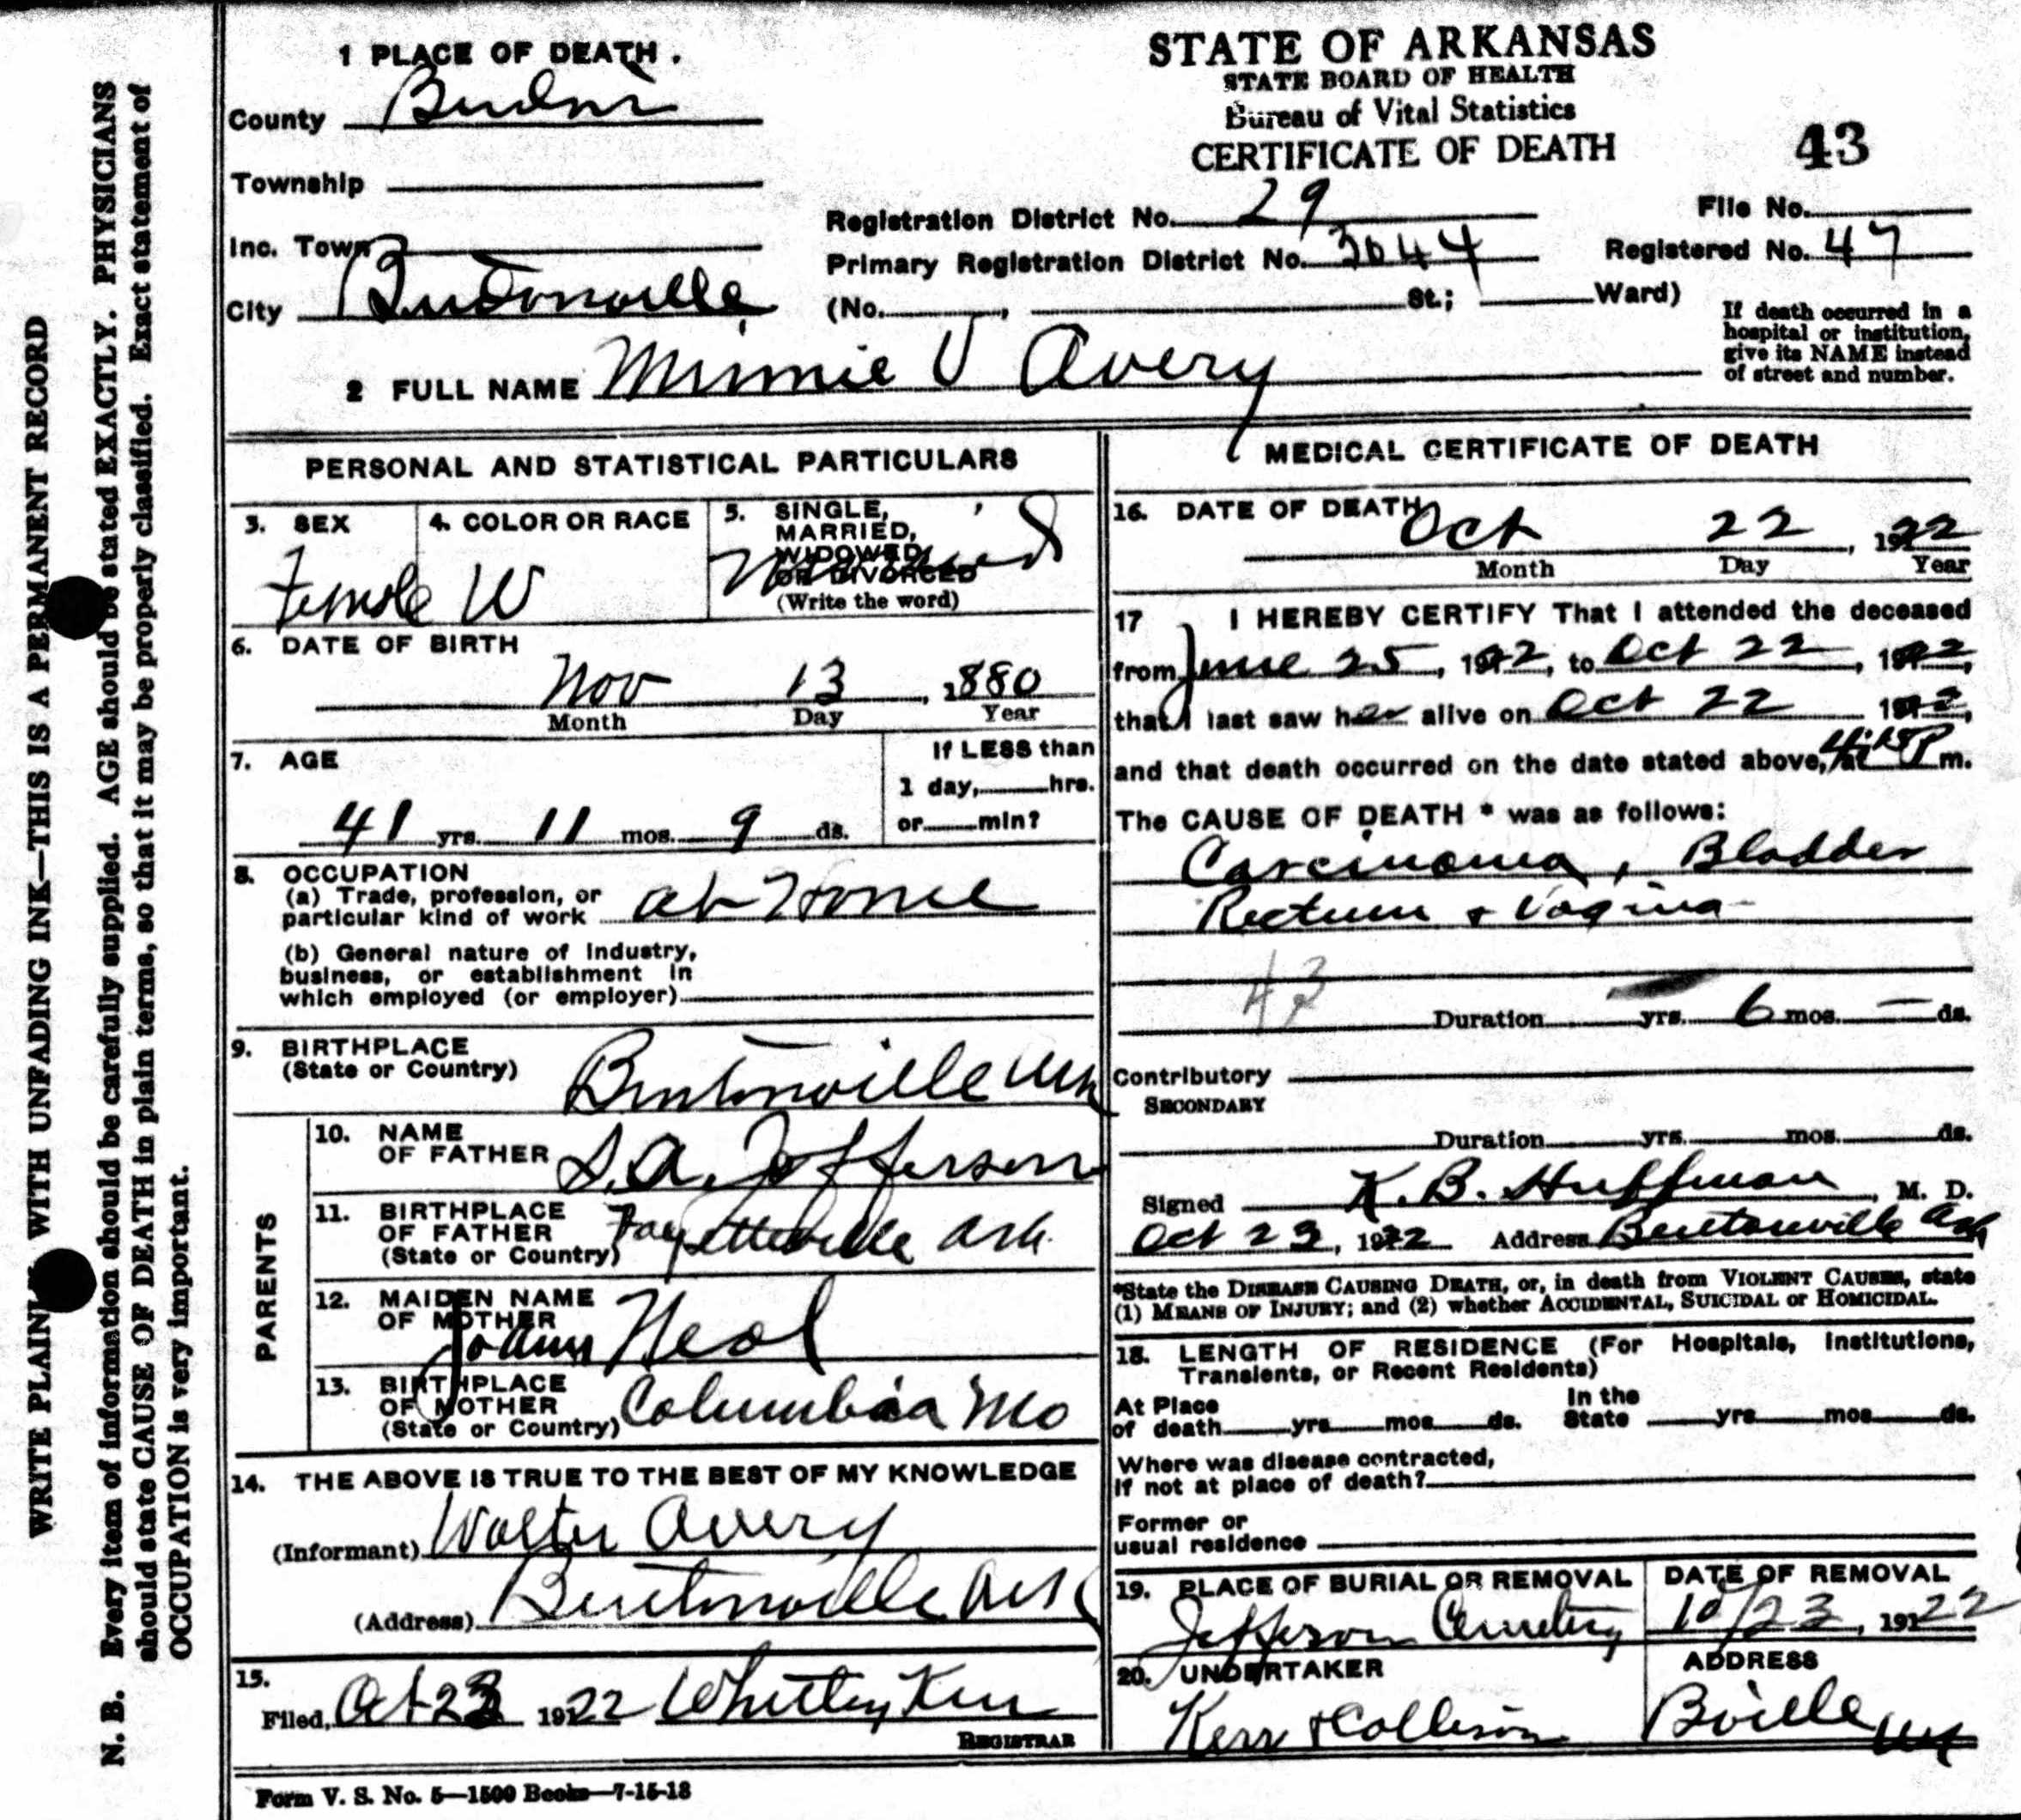 1 PLACE OF DEATH.
County Benton
Township
Inc. Town
City Bentonville
STATE OF ARKANSAS
STATE BOARD OF HEALTH
Bureau of Vital Statistics
CERTIFICATE OF DEATH
43
Registration District No. 29
File No.
Primary Registration District No. 3044
Registered No. 47
(No. , St.; Ward)
If death occurred in a
hospital or institution,
give its NAME instead
of street and number.
2 FULL NAME Minnie V Avery
PERSONAL AND STATISTICAL PARTICULARS
3. SEX
Female
4. COLOR OR RACE
W
5. SINGLE,
MARRIED,
WIDOWED,
OR DIVORCED
(Write the word)
Married
6. DATE OF BIRTH
Nov 13, 1880
Month Day Year
7. AGE
41 yrs. 11 mos. 9 ds.
If LESS than
1 day, hrs.
or min?
8. OCCUPATION
(a) Trade, profession, or
particular kind of work at Home
(b) General nature of industry,
business, or establishment in
which employed (or employer)
9. BIRTHPLACE
(State or Country) Bentonville Ark
PARENTS
10. NAME
OF FATHER S. A. Jefferson
11. BIRTHPLACE
OF FATHER
(State or Country) Fayetteville Ark.
12. MAIDEN NAME
OF MOTHER
Joann Neal
13. BIRTHPLACE
OF MOTHER
(State or Country) Columbia Mo
14. THE ABOVE IS TRUE TO THE BEST OF MY KNOWLEDGE
(Informant) Walter Avery
(Address) Bentonville Ark
15.
Filed, Oct 23 1922 Whittley Kerr
REGISTRAR
Form V. S. No. 5—1500 Books—7-15-18
MEDICAL CERTIFICATE OF DEATH
16. DATE OF DEATH
Oct 22, 1922
Month Day Year
17 I HEREBY CERTIFY That I attended the deceased
from June 25, 1922, to Oct 22, 1922,
that I last saw her alive on Oct 22 1922,
and that death occurred on the date stated above, at 4:15 P m.
The CAUSE OF DEATH * was as follows:
Carcinoma, Bladder
Rectum + Vagina
43
Duration yrs. 6 mos. — ds.
Contributory
SECONDARY
Duration yrs. mos. ds.
Signed K. B. Huffman, M. D.
Oct 23, 1922 Address Bentonville Ark
*State the DISEASE CAUSING DEATH, or, in death from VIOLENT CAUSES, state
(1) MEANS OF INJURY; and (2) whether ACCIDENTAL, SUICIDAL or HOMICIDAL.
18. LENGTH OF RESIDENCE (For Hospitals, Institutions,
Transients, or Recent Residents)
At Place
of death yrs mos ds.
In the
State yrs mos ds.
Where was disease contracted,
if not at place of death?
Former or
usual residence
19. PLACE OF BURIAL OR REMOVAL
Jefferson Cemetery
DATE OF REMOVAL
10/23, 1922
20. UNDERTAKER
Kerr & Collison
ADDRESS
Bville Ark
WRITE PLAINLY WITH UNFADING INK—THIS IS A PERMANENT RECORD
N. B. Every item of information should be carefully supplied. AGE should be stated EXACTLY. PHYSICIANS
should state CAUSE OF DEATH in plain terms, so that it may be properly classified. Exact statement of
OCCUPATION is very important.